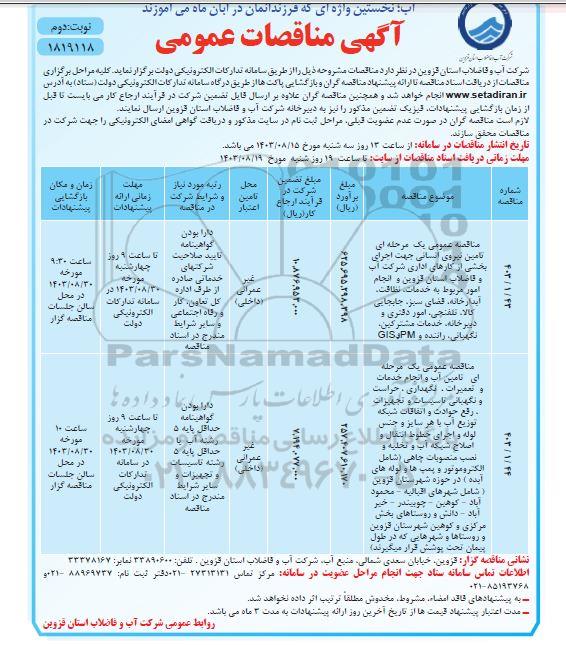 آب؛ نخستین واژه ای که فرزندانمان در آبان ماه می آموزند
آگهی مناقصات عمومی
نوبت:دوم
۱۸۱۹۱۱۸
شرکت آب و فاضلاب استان قزوین
شرکت آب و فاضلاب استان قزوین در نظر دارد مناقصات مشروحه ذیل را از طریق سامانه تدارکات الکترونیکی دولت برگزار نماید. کلیه مراحل برگزاری
مناقصات از دریافت اسناد مناقصه تا ارائه پیشنهاد مناقصه گران و بازگشایی پاکت ها از طریق درگاه سامانه تدارکات الکترونیکی دولت (ستاد) به آدرس
www.setadiran.ir انجام خواهد شد و همچنین مناقصه گران علاوه بر ارسال فایل تضمین شرکت در فرآیند ارجاع کار می بایست تا قبل
از زمان بازگشایی پیشنهادات، فیزیک تضمین مذکور را نیز به دبیرخانه شرکت آب و فاضلاب استان قزوین ارسال نمایند.
لازم است مناقصه گران در صورت عدم عضویت قبلی، مراحل ثبت نام در سایت مذکور و دریافت گواهی امضای الکترونیکی را جهت شرکت در
مناقصات محقق سازند.
تاریخ انتشار مناقصات در سامانه: از ساعت ۱۳ روز سه شنبه مورخ ۱۴۰۳/۰۸/۱۵ می باشد.
مهلت زمانی دریافت اسناد مناقصات از سایت: تا ساعت ۱۹ روز شنبه مورخ ۱۴۰۳/۰۸/۱۹
شماره مناقصه
موضوع مناقصه
مبلغ برآورد (ریال)
مبلغ تضمین شرکت در فرآیند ارجاع کار(ریال)
محل تامین اعتبار
رتبه مورد نیاز و شرایط شرکت در مناقصه
مهلت زمانی ارائه پیشنهادات
زمان و مکان بازگشایی پیشنهادات
مناقصه عمومی یک مرحله ای
تامین نیروی انسانی جهت اجرای
بخشی از کارهای اداری شرکت آب
و فاضلاب استان قزوین و انجام
امور مربوط به خدمات، نظافت،
آبدارخانه، فضای سبز، جابجایی
کالا، تلفنچی، امور دفتری و
دبیرخانه، خدمات مشترکین،
نگهبانی، راننده و PM و GIS
غیر
عمرانی
(داخلی)
دارا بودن
گواهینامه
تایید صلاحیت
شرکتهای
خدماتی صادره
از طرف اداره
کل تعاون، کار
و رفاه اجتماعی
و سایر شرایط
مندرج در اسناد
مناقصه
تا ساعت ۹ روز
چهارشنبه
مورخه
۱۴۰۳/۰۸/۳۰ در
سامانه تدارکات
الکترونیکی
دولت
ساعت ۹:۳۰
مورخه
۱۴۰۳/۰۸/۳۰
در محل
سالن جلسات
مناقصه گزار
مناقصه عمومی یک مرحله
ای تامین آب و انجام خدمات
و تعمیرات ، نگهداری ، حراست
و نگهبانی تاسیسات و تجهیزات
، رفع حوادث و اتفاقات شبکه
توزیع آب با هر سایز و جنس
لوله و اجرای خطوط انتقال و
اصلاح شبکه آب و تخلیه و
نصب منصوبات چاهی (شامل
الکتروموتور و پمپ ها و لوله های
آبده ) در حوزه شهرستان قزوین
( شامل شهرهای اقبالیه - محمود
آباد - کوهین - چوبیندر - خیر
آباد - دانش و روستاهای بخش
مرکزی و کوهین شهرستان قزوین
و روستاها و شهرهایی که در طول
پیمان تحت پوشش قرار میگیرند)
غیر
عمرانی
(داخلی)
دارا بودن
گواهینامه
حداقل پایه ۵
رشته آب یا
حداقل پایه ۵
رشته تاسیسات
و تجهیزات و
سایر شرایط
مندرج در اسناد
مناقصه
تا ساعت ۹ روز
چهارشنبه
مورخه
۱۴۰۳/۰۸/۳۰
در سامانه
تدارکات
الکترونیکی
دولت
ساعت ۱۰
مورخه
۱۴۰۳/۰۸/۳۰
در محل
سالن جلسات
مناقصه گزار
نشانی مناقصه گزار: قزوین، خیابان سعدی شمالی، منبع آب، شرکت آب و فاضلاب استان قزوین . تلفن: ۳۳۸۹۰۶۰۰ نمابر: ۳۳۳۷۸۱۶۷
اطلاعات تماس سامانه ستاد جهت انجام مراحل عضویت در سامانه: مرکز تماس ۲۷۳۱۳۱۳۱ -۰۲۱ دفتر ثبت نام: ۸۸۹۶۹۷۳۷ -۰۲۱ و
۸۵۱۹۳۷۶۸-۰۲۱
ـ به پیشنهادهای فاقد امضاء، مشروط، مخدوش مطلقاً ترتیب اثر داده نخواهد شد.
ـ مدت اعتبار پیشنهاد قیمت ها از تاریخ آخرین روز ارائه پیشنهادات به مدت ۳ ماه می باشد.
روابط عمومی شرکت آب و فاضلاب استان قزوین
ParsNamadData